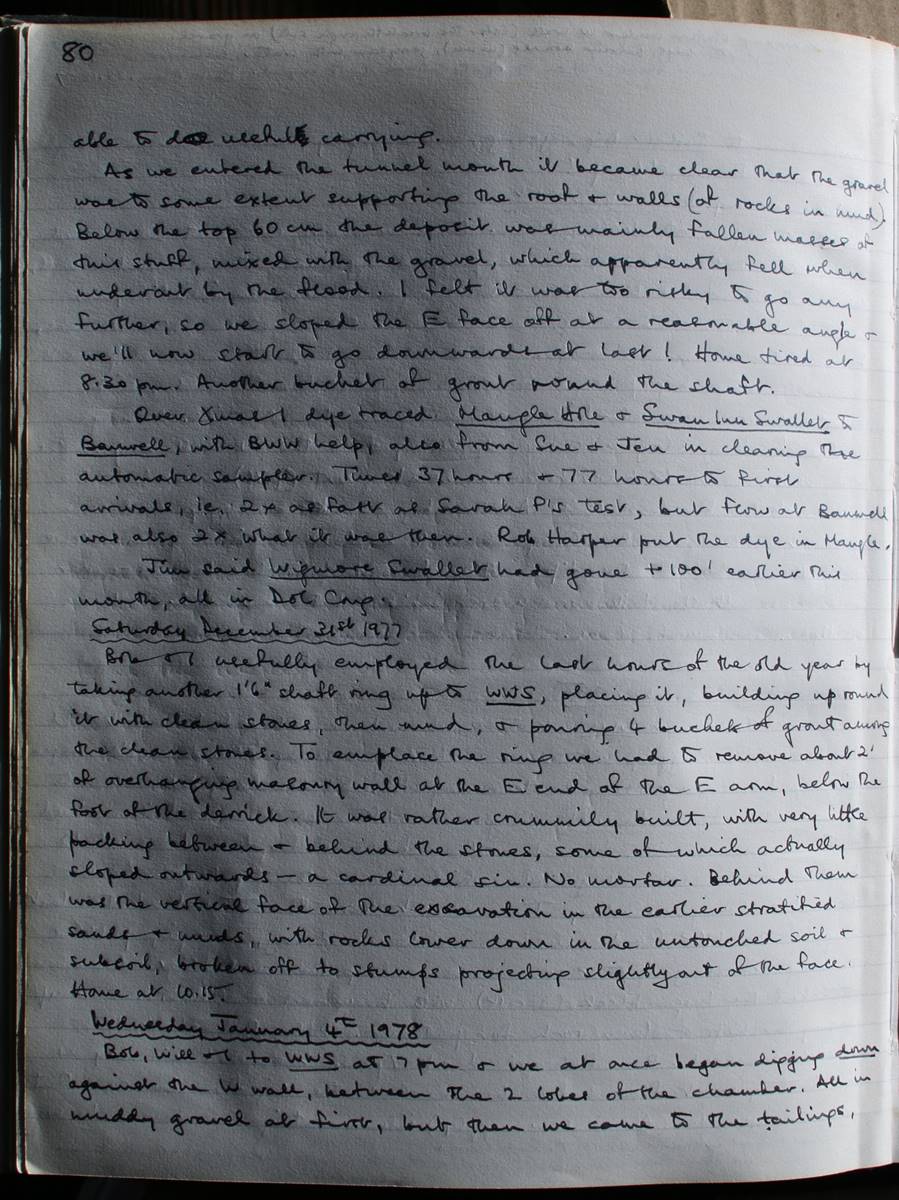 80
able to do useful carrying.
As we entered the tunnel mouth it became clear that the gravel
was to some extent supporting the roof + walls (of rocks in mud).
Below the top 60 cm the deposit was mainly fallen masses of
this stuff, mixed with the gravel, which apparently fell when
undercut by the flood. I felt it was too risky to go any
further, so we sloped the E face off at a reasonable angle +
we'll now start to go downwards at last! Home tired at
8.30 pm. Another bucket of grout round the shaft.
Over Xmas I dye traced Mangle Hole + Swan Inn Swallet to
Banwell, with BWW help, also from Sue + Jen in clearing the
automatic sampler. Times 37 hours + 77 hours to first
arrivals, ie. 2x as fast as Sarah P's test, but flow at Banwell
was also 2x what it was then. Rob Harper put the dye in Mangle.
Jim said Wigmore Swallet had gone + 100' earlier this
month, all in Dol. Cong.
Saturday December 31st 1977
Bob + I usefully employed the last hours of the old year by
taking another 1'6" shaft ring up to WWS, placing it, building up round
it with clean stones, then mud, + pouring 4 buckets of grout among
the clean stones. To emplace the ring we had to remove about 2'
of overhanging masonry wall at the E end of the E arm, below the
foot of the derrick. It was rather crummily built, with very little
packing between + behind the stones, some of which actually
sloped outwards – a cardinal sin. No mortar. Behind them
was the vertical face of the excavation in the earlier stratified
sands + muds, with rocks lower down in the untouched soil +
subsoil, broken off to stumps projecting slightly out of the face.
Home at 10.15.
Wednesday January 4th 1978
Bob, Will + I to WWS at 7 pm + we at once began digging down
against the W wall, between the 2 lobes of the chamber. All in
muddy gravel at first, but then we came to the tailings,